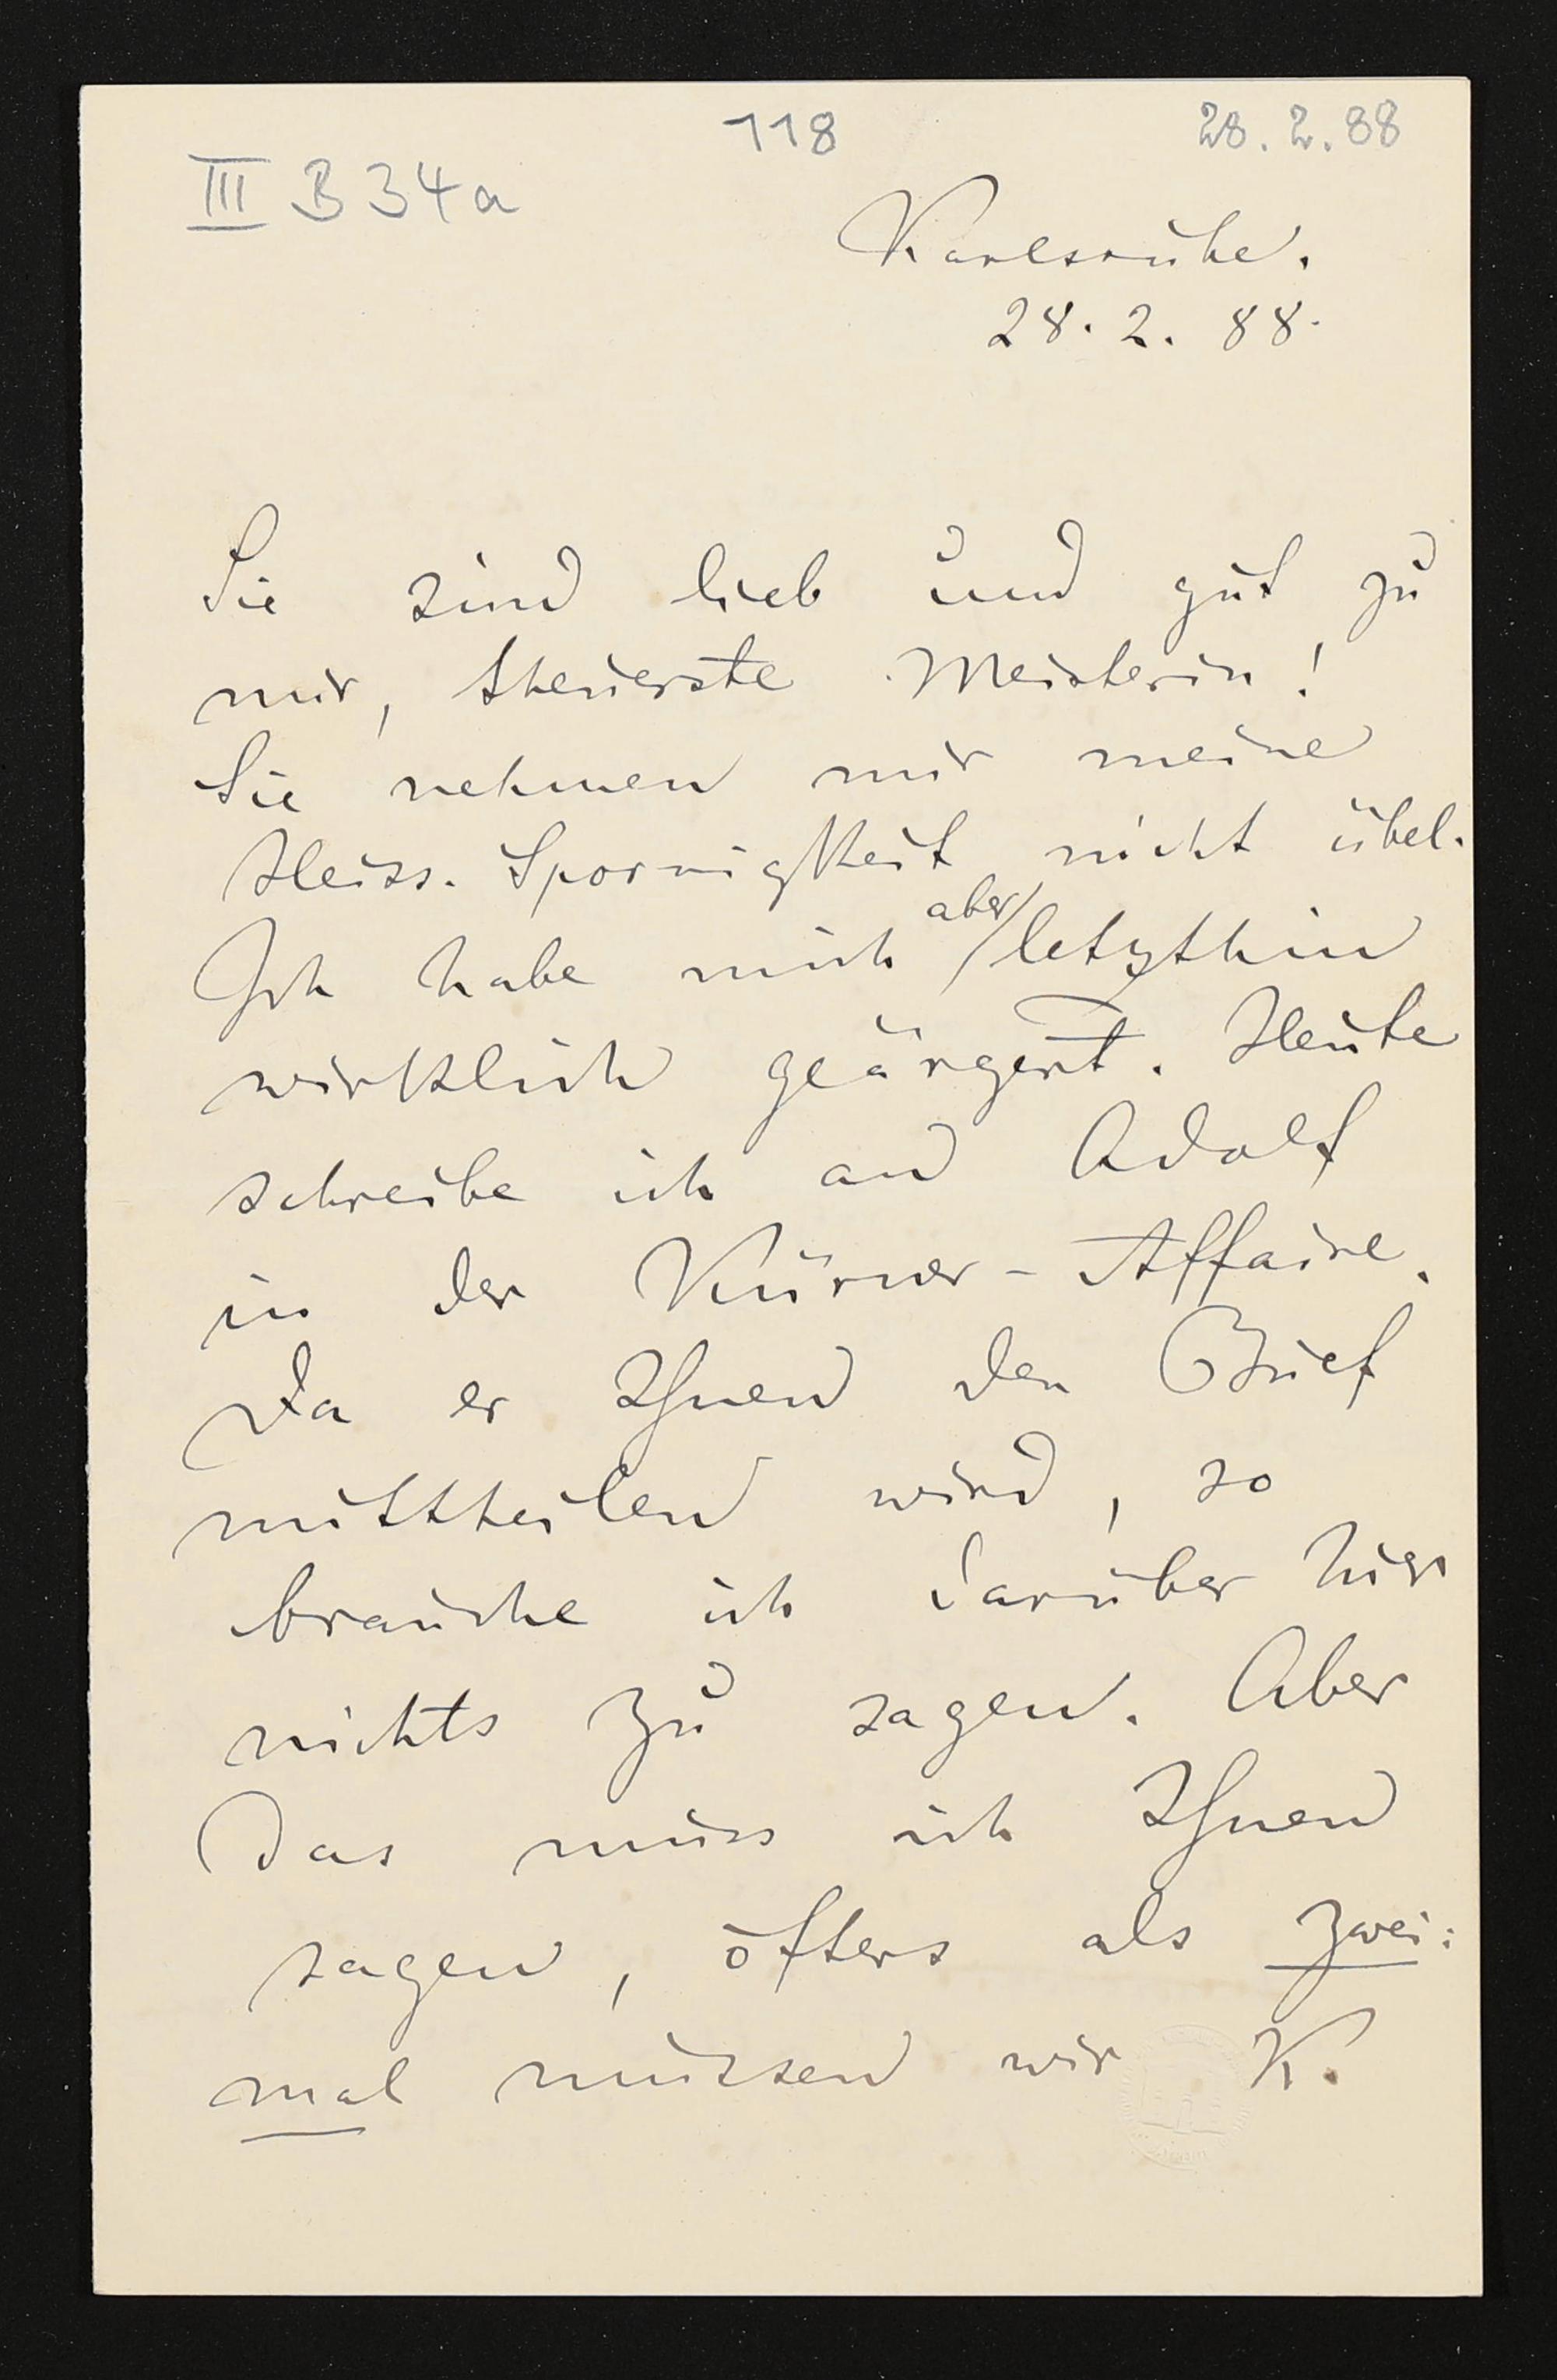 118
28.2.88
III B 34a
Karlsruhe.
28. 2. 88.
Sie sind lieb und gut zu
mir, theuerste Meisterin!
Sie nehmen mir meine
Heiss-Spornigkeit nicht übel.
Ich habe mich aber letzthin
wirklich geärgert. Heute
schreibe ich an Adolf
in der Kürner-Affaire.
Da er Ihnen den Brief
mittheilen wird, so
brauche ich darüber hier
nichts zu sagen. Aber
das muss ich Ihnen
sagen, öfters als zwei:
mal müssen wir K.